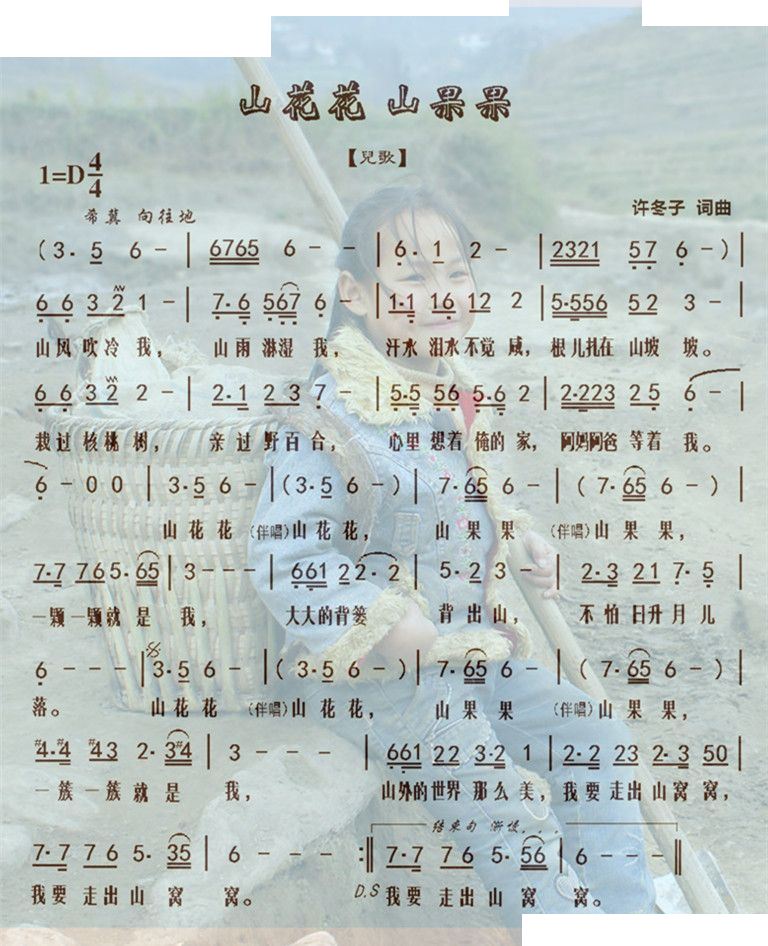 山花花 山果果
【兒歌】
1=D 4/4
希冀 向往地
许冬子 词曲
(3· 5 6 - | 6765 6 - - | 6· 1 2 - | 2321 57 6 - ) |
6 6 3 2 1 - | 7·6 567 6 - | 1·1 16 12 2 | 5·556 52 3 - |
山风吹冷我， 山雨淋湿我， 汗水泪水不觉咸，根儿扎在山坡坡。
6 6 3 2 2 - | 2·1 2·3 7 - | 5·5 56 5·6 2 | 2·223 25 6 - |
栽过核桃树， 亲过野百合， 心里想着俺的家，阿妈阿爸等着我。
6 - 0 0 | 3·5 6 - | (3·5 6 - ) | 7·65 6 - | ( 7·65 6 - ) |
山花花 (伴唱)山花花， 山果果 (伴唱)山果果，
7·7 765·65 | 3 - - - | 661 22·2 | 5·2 3 - | 2·3 21 7·5 |
一颗一颗就是我， 大大的背篓 背出山， 不怕日升月儿
6 - - - | 3·5 6 - | (3·5 6 - ) | 7·65 6 - | ( 7·65 6 - ) |
落。 山花花 (伴唱)山花花， 山果果 (伴唱)山果果，
#4·#4 #43 2·3#4 | 3 - - - | 661 22 3·2 1 | 2·2 23 2·3 50 |
一簇一簇就是我， 山外的世界那么美，我要走出山窝窝，
结束句 渐慢...
7·7 76 5·35 | 6 - - - :‖ 7·7 76 5·56 | 6 - - - ‖
我要走出山窝窝。 D.S 我要走出山窝窝。